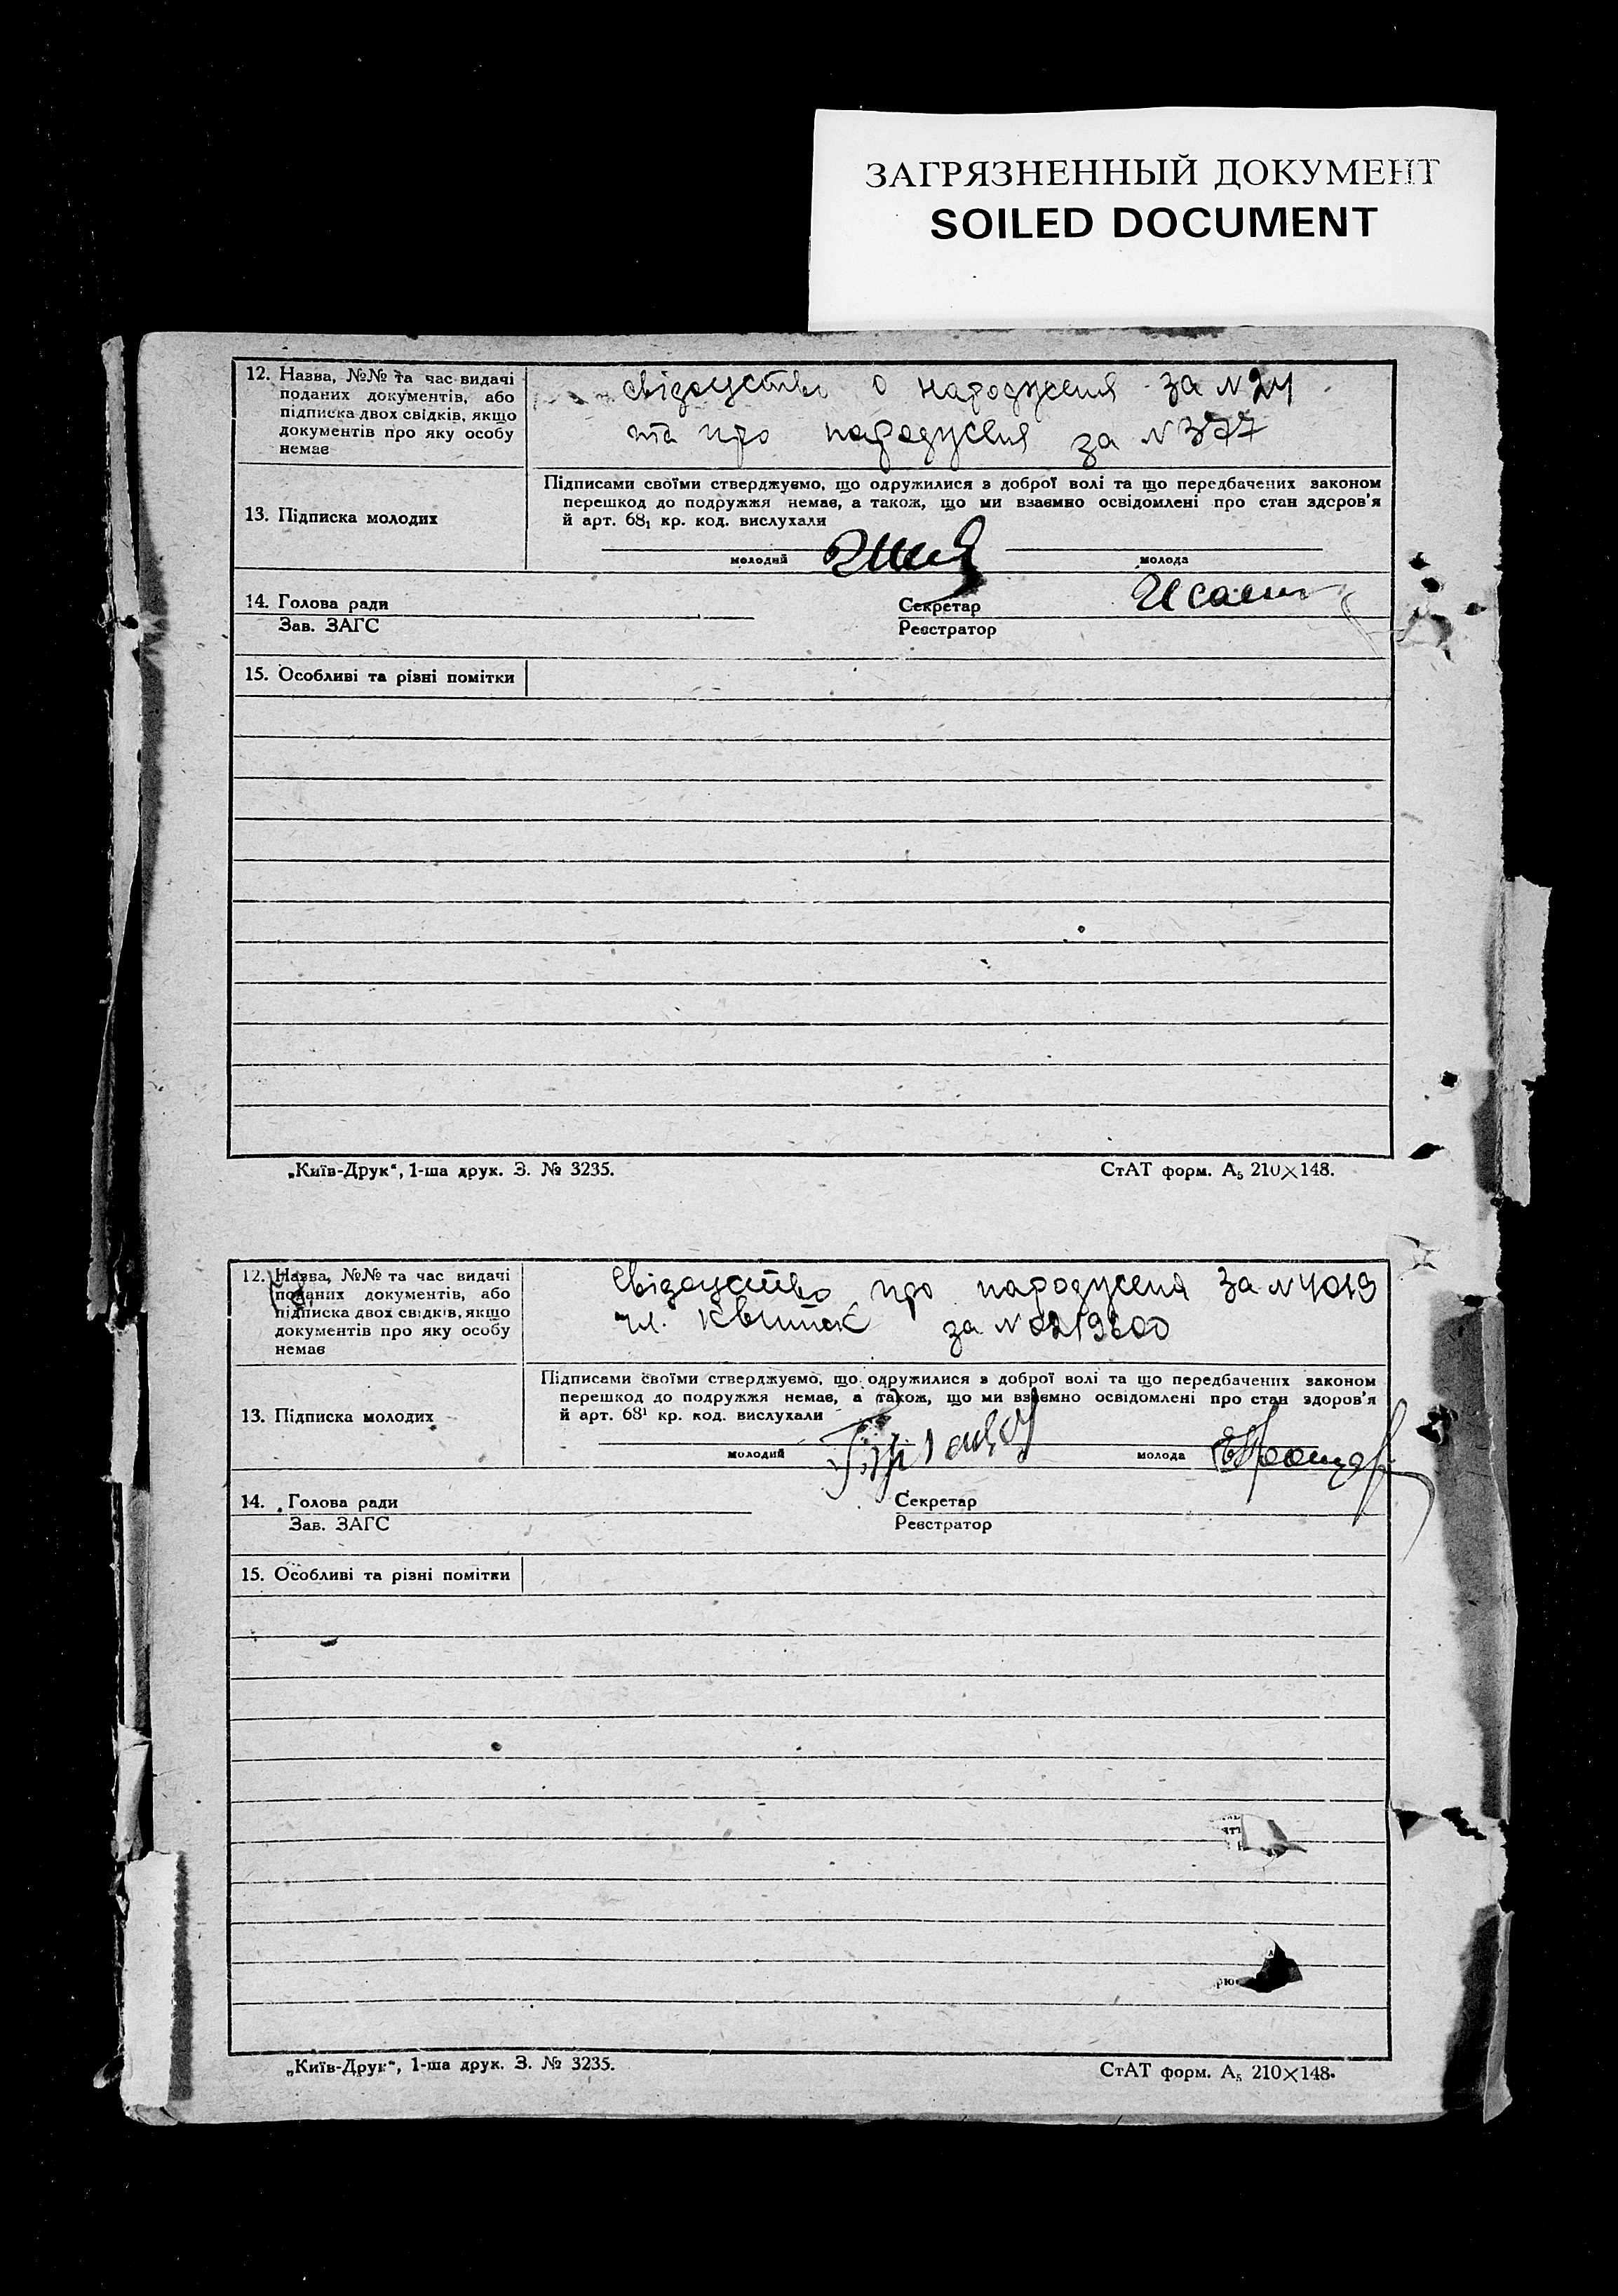 ЗАГРЯЗНЕННЫЙ ДОКУМЕНТ
SOILED DOCUMENT
12. Назва, №№ та час видачі
поданих документів, або
підписка двох свідків, якщо
документів про яку особу
немає
свідоцтво о народження за N 24
та про народження за N 377
13. Підписка молодих
Підписами своїми стверджуємо, що одружилися з доброї волі та що передбачених законом
перешкод до подружжя немає, а також, що ми взаємно освідомлені про стан здоров'я
й арт. 68₁ кр. код. вислухали
молодий молода
14. Голова ради Секретар
Зав. ЗАГС Реєстратор
15. Особливі та різні помітки
„Київ-Друк“, 1-ша друк. З. № 3235. СтАТ форм. А₅ 210×148.
12. Назва, №№ та час видачі
поданих документів, або
підписка двох свідків, якщо
документів про яку особу
немає
Свідоцтво про народження за N 4019
чл. квиток за N 0219600
13. Підписка молодих
Підписами своїми стверджуємо, що одружилися з доброї волі та що передбачених законом
перешкод до подружжя немає, а також, що ми взаємно освідомлені про стан здоров'я
й арт. 68¹ кр. код. вислухали
молодий молода
14. Голова ради Секретар
Зав. ЗАГС Реєстратор
15. Особливі та різні помітки
„Київ-Друк“, 1-ша друк. З. № 3235. СтАТ форм. А₅ 210×148.